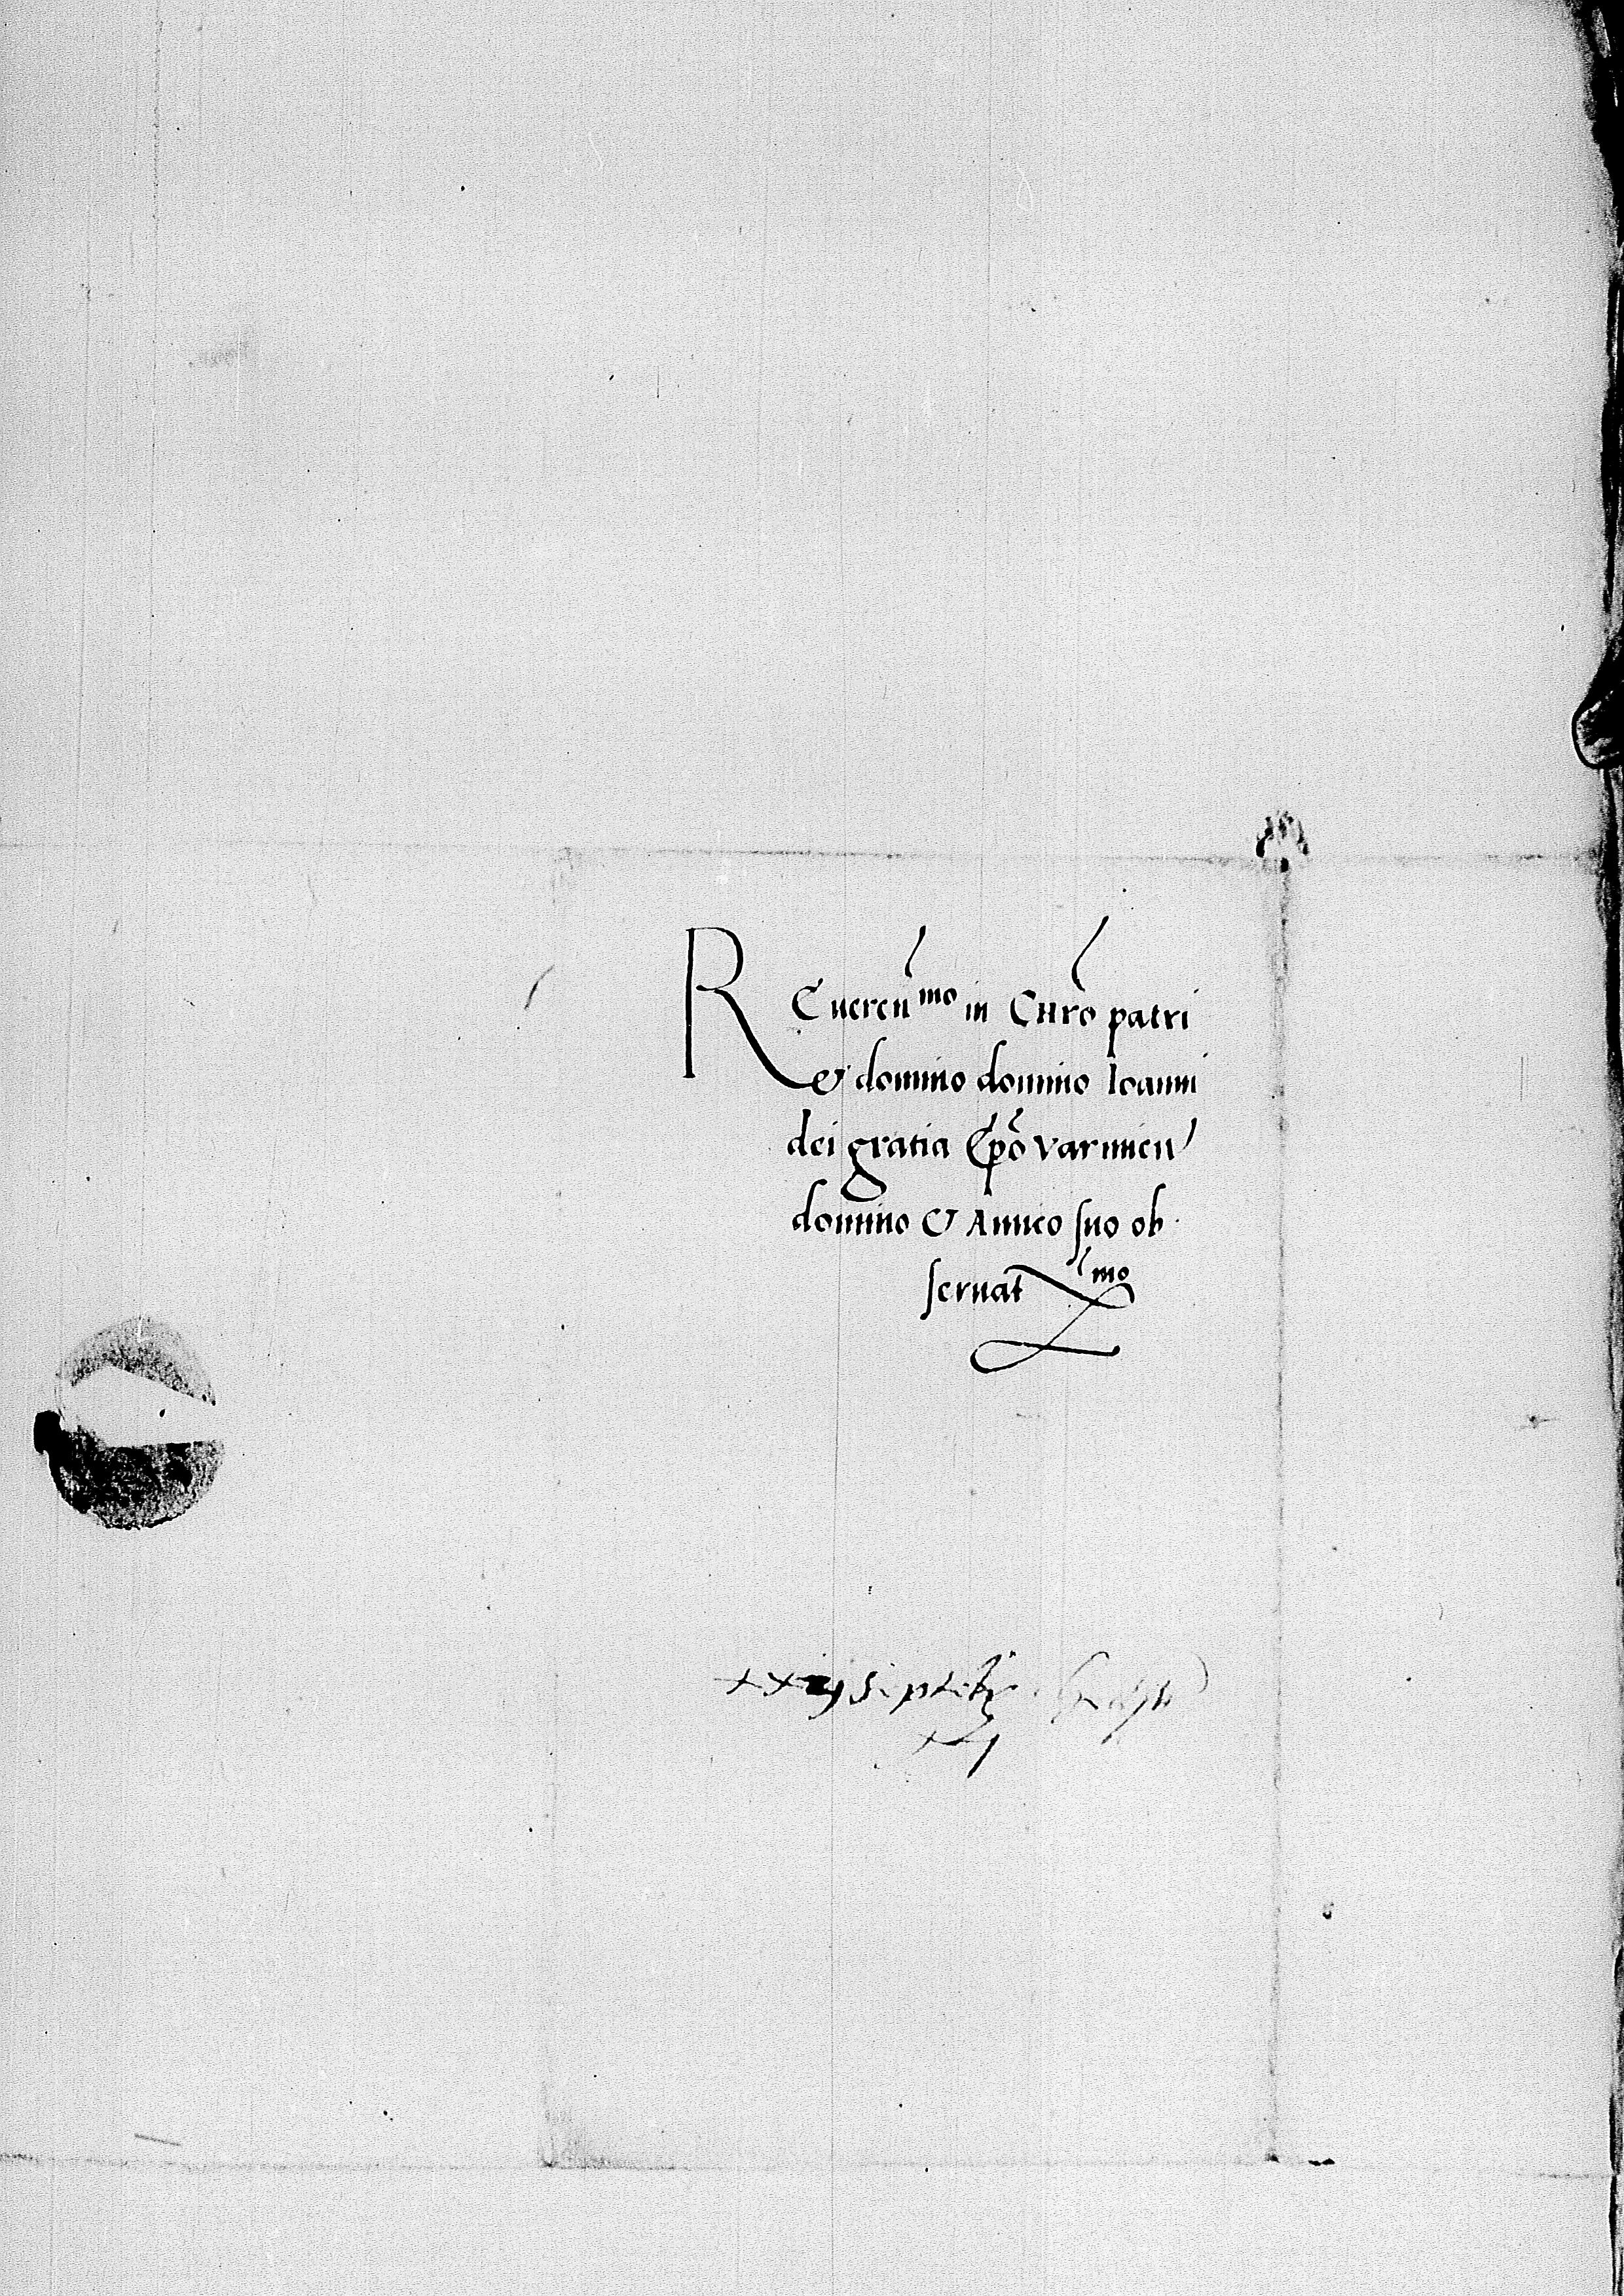 Reueren^mo in Chr̃o patri
& domino domino Ioanni
dei gratia Ep̃o varmien̄
domino & Amico suo ob
seruat^mo